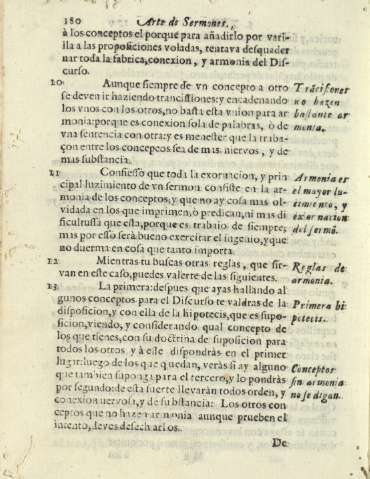 180 Arte de Sermones,
à los conceptos el porquè para añadirlo por vari-
lla a las proposiciones voladas, tentava desquader
nar toda la fabrica, conexion, y armonia del Dis-
curso.
10 Aunque siempre de vn concepto a otro
se deven ir haziendo transissiones: y encadenando
los vnos con los otros, no basta esta vnion para ar
monia: porque es conexion sola de palabras, ò de
vna sentencia con otra: y es menester que la traba-
çon entre los conceptos sea de mas niervos, y de
mas substancia.
Trãcisiones
no hazen
bastante ar
monia.
11 Confiesso que toda la exornacion, y prin
cipal luzimiento de vn sermon consiste en la ar-
monia de los conceptos: y que no ay cosa mas ol-
vidada en los que imprimen, ò predican, ni mas di
ficultussa que esta, porque es trabajo de siempre;
mas por esso serà bueno exercitar el ingenio, y que
no duerma en cosa que tanto importa.
Armonia es
el mayor lu-
zimiento, y
exornacion
del sermõ.
12 Mientras tu buscas otras reglas, que sir-
van en este caso, puedes valerte de las siguientes.
Reglas de
armonia.
13 La primera: despues que ayas hallando al
gunos conceptos para el Discurso te valdras de la
disposicion, y con ella de la hipotecis, que es supo-
sicion, viendo, y considerando qual concepto de
los que tienes, con su doctrina de suposicion para
todos los otros y à este dispondràs en el primer
lugar: luego de los que quedan, veràs si ay alguno
que tambien suponga para el tercero, y lo pondràs
por segundo: de esta suerte llevaràn todos orden, y
conexion nervosa, y de substancia: Los otros con
ceptos que no hazen armonia aunque prueben el
intento, deves desecharlos.
Primera hi
potecis.
Conceptos
sin armonia
no se digan.
De